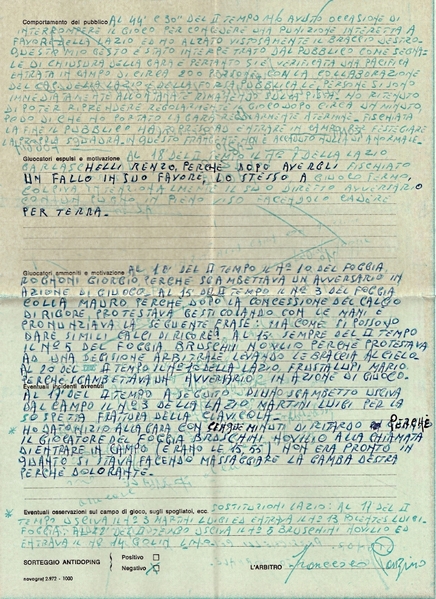 Comportamento del pubblico AL 44' E 30" DEL II TEMPO HO AVUTO OCCASIONE DI
INTERROMPERE IL GIOCO PER CONCEDERE UNA PUNIZIONE INDIRETTA A
FAVORE DELLA LAZIO ED HO ALZATO VISTOSAMENTE IL BRACCIO DESTRO.
QUESTO MIO GESTO È STATO INTERPRETATO DAL PUBBLICO COME SEGNA-
LE DI CHIUSURA DELLA GARA E PERTANTO SI È VERIFICATA UNA PACIFICA
ENTRATA IN CAMPO DI CIRCA 200 PERSONE. CON LA COLLABORAZIONE
DEL CAP. DELLA LAZIO E DELLA FORZA PUBBLICA LE PERSONE SI SONO
IMMEDIATAMENTE ALLONTANATE
DI POTER RIPRENDERE REGOLARMENTE IL GIOCO DOPO CIRCA UN MINUTO
HO PORTATO LA GARA REGOLARMENTE A TERMINE. FISCHIATA
LA FINE IL PUBBLICO HA RIPRESO AD ENTRARE IN CAMPO PER FESTEGGIARE
LA PROPRIA SQUADRA. IN QUESTO FRANGENTE NULLA
Giuocatori espulsi e motivazione AL 18' DEL II DELLA LAZIO
GARLASCHELLI RENZO, PERCHÈ DOPO AVERGLI FISCHIATO
UN FALLO IN SUO FAVORE, LO STESSO A GIUOCO FERMO,
COLPIVA INTENZIONALMENTE IL SUO DIRETTO AVVERSARIO
CON UN PUGNO IN PIENO VISO FACENDOLO CADERE
PER TERRA.
Giuocatori ammoniti e motivazione AL 10' DEL II TEMPO IL N° 10 DEL FOGGIA
ROGNONI GIORGIO PERCHÈ SGAMBETTAVA UN AVVERSARIO IN
AZIONE DI GIUOCO. AL 15' DEL II TEMPO IL N° 3 DEL FOGGIA
COLLA MAURO PERCHÈ DOPO LA CONCESSIONE DEL CALCIO
DI RIGORE PROTESTAVA GESTICOLANDO CON LE MANI E
PRONUNZIAVA LA SEGUENTE FRASE: MA COME SI POSSONO
DARE SIMILI CALCI DI RIGORE. AL 15' SEMPRE DEL II TEMPO
IL N° 5 DEL FOGGIA BRUSCHINI NOVILIO PERCHÈ PROTESTAVA
AD UNA DECISIONE ARBITRALE LEVANDO LE BRACCIA AL CIELO.
AL 20' DEL II TEMPO IL N° 10 DELLA LAZIO, FRUSTALUPI MARIO
PERCHÈ SGAMBETTAVA UN AVVERSARIO IN AZIONE DI GIUOCO.
Eventuali incidenti avvenuti
AL 17' DEL II TEMPO A SEGUITO DI UNO SGAMBETTO USCIVA
DAL CAMPO IL N° 3 DELLA LAZIO MARTINI LUIGI PER LA
SOSPETTA FRATTURA DELLA CLAVICOLA.
* HO DATO INIZIO ALLA GARA CON CINQUE MINUTI DI RITARDO PERCHÈ
IL GIOCATORE DEL FOGGIA BRUSCHINI NOVILIO ALLA CHIAMATA
DI ENTRARE IN CAMPO (ERANO LE 15,55), NON ERA PRONTO IN
QUANTO SI STAVA FACENDO MASSAGGIARE LA GAMBA DESTRA
PERCHÈ DOLORANTE.
Eventuali osservazioni sul campo di giuoco, sugli spogliatoi, ecc. SOSTITUZIONI LAZIO: AL 17' DEL II
TEMPO USCIVA IL N° 3 MARTINI LUIGI ED ENTRAVA IL N° 13 POLENTES LUIGI.
FOGGIA: AL 22' DEL II TEMPO USCIVA IL N° 5 BRUSCHINI NOVILIO ED
ENTRAVA IL N° 14 GOLIN LINO.
SORTEGGIO ANTIDOPING
Positivo
Negativo
L'ARBITRO Francesco Panzino
novograf 2.972 - 1000